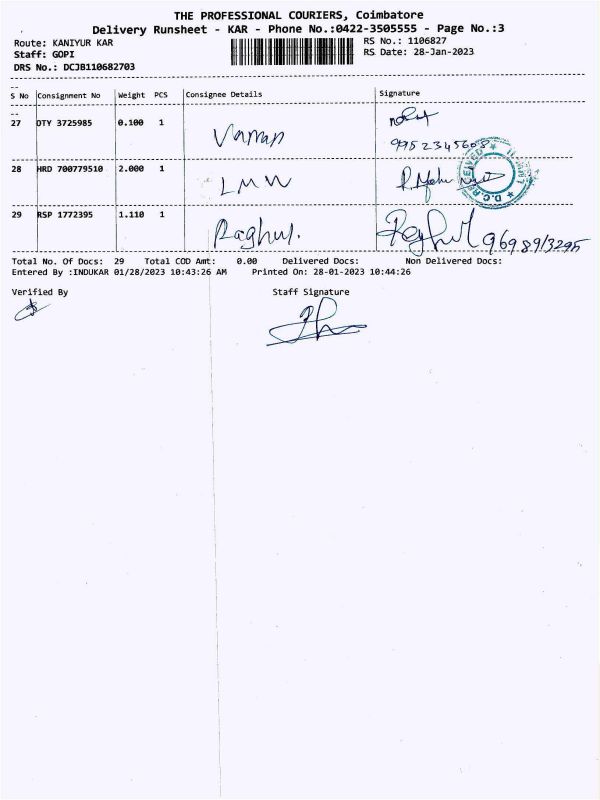 THE PROFESSIONAL COURIERS, Coimbatore
Delivery Runsheet - KAR - Phone No.:0422-3505555 - Page No.:3
Route: KANIYUR KAR
RS No.: 1106827
Staff: GOPI
RS Date: 28-Jan-2023
DRS No.: DCJB110682703
S No Consignment No Weight PCS Consignee Details Signature
27 DTY 3725985 0.100 1 Vaman
28 HRD 700779510 2.000 1 LMW
29 RSP 1772395 1.110 1 Raghul. Raghul
Total No. Of Docs: 29 Total COD Amt: 0.00 Delivered Docs: Non Delivered Docs:
Entered By :INDUKAR 01/28/2023 10:43:26 AM Printed On: 28-01-2023 10:44:26
Verified By Staff Signature